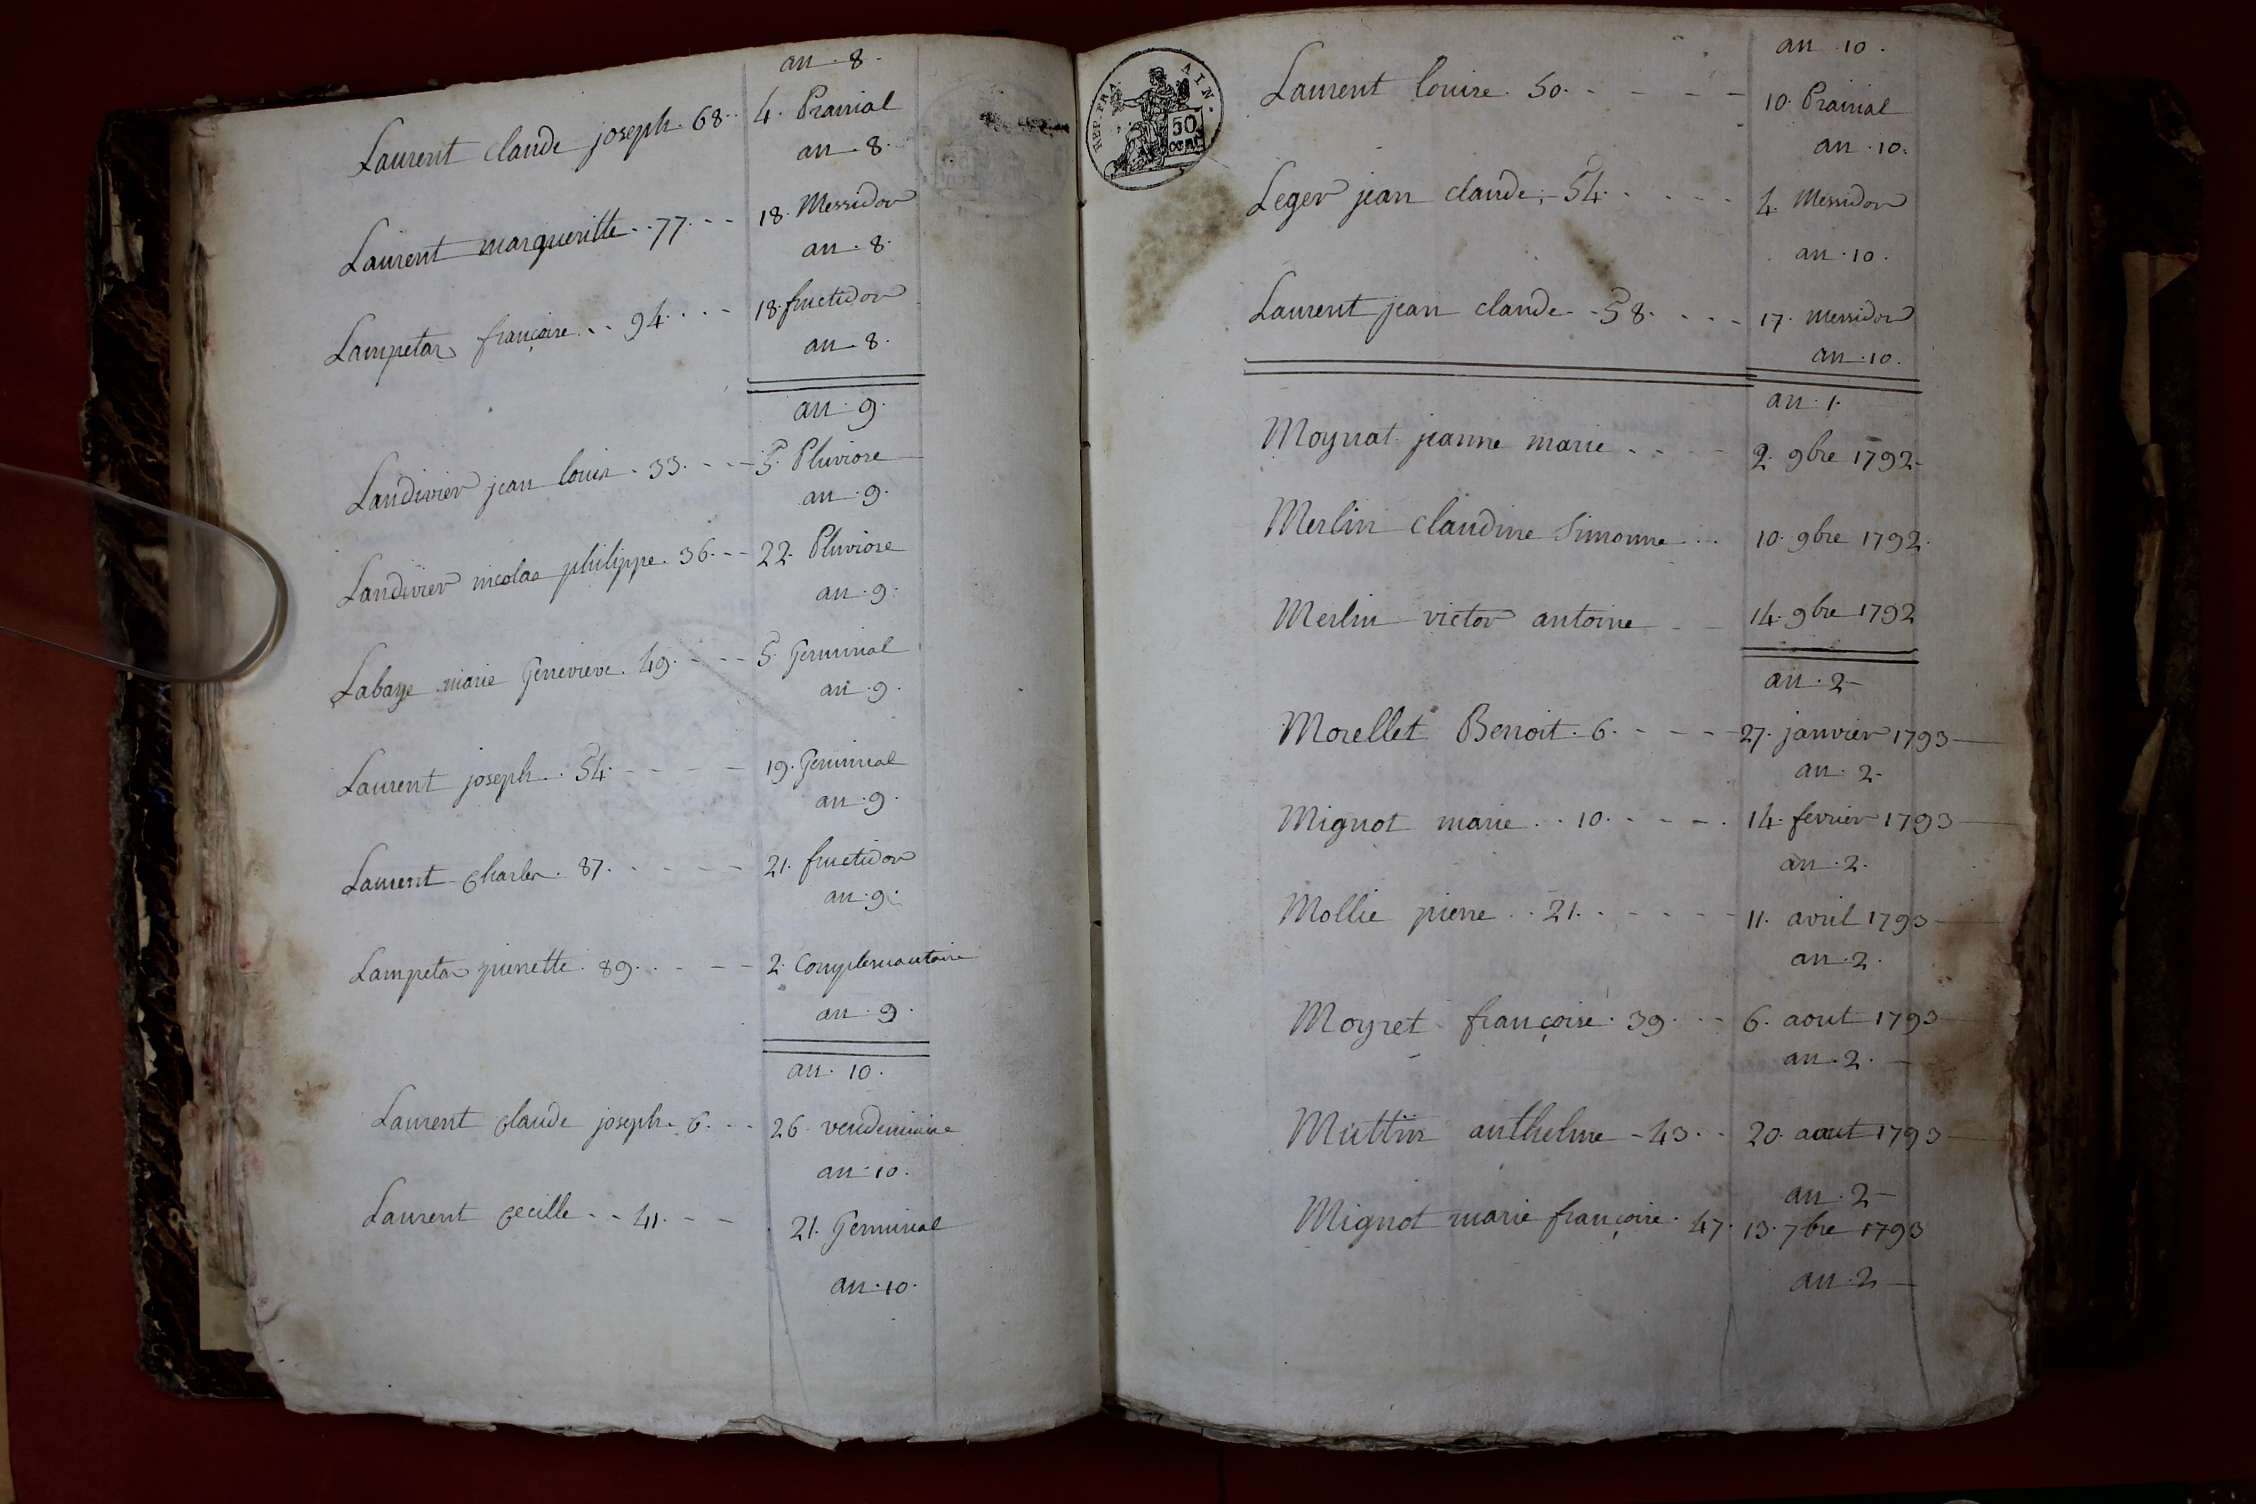 an . 8 .
Laurent claude joseph . 68 . . 4 . Prairial
an . 8 .
Laurent margueritte . . 77 . - - 18 . Messidor
an . 8 .
Lampetaz françoise . . . 94 . . . - 18 . fructidor
an . 8 .
an . 9 .
Landivier jean louis . 33 . - - - 5 . Pluviose
an . 9 .
Landivier nicolas philippe . 36 . - - 22 . Pluviose
an . 9 .
Labaye marie Genevieve . 49 . - - - 5 . Germinal
an . 9 .
Laurent joseph . . 54 . - - - - 19 . Germinal
an . 9 .
Laurent Charles . 87 . . . - - - 21 . fructidor
an . 9 .
Lampetaz pierrette . 89 . . - - - 2 . Complemantaire
an . 9 .
an . 10 .
Laurent Claude joseph . 6 . - - 26 . vendemiaire
an . 10 .
Laurent Cecille . - - 41 . - - 21 . Germinal
an . 10 .
REP. FRA. AIN.
50 CENT
an . 10 .
Laurent louise . 50 . - - - - - 10 . Prairial
an . 10 .
Leger jean claude , - 54 . . . - - - 4 . Messidor
an . 10 .
Laurent jean claude - - 58 . . . - 17 . messidor
an . 10 .
an . 1 .
Moynat jeanne marie . - - - 2 . 9bre 1792 -
Merlin claudine Simonne . . . 10 . 9bre 1792 .
Merlin victor antoine - - 14 . 9bre 1792
an . 2 -
Morellet Benoit . 6 . - - - - 27 . janvier 1793 -
an . 2 -
Mignot marie . . 10 . - - - . 14 . fevrier 1793 -
an . 2 .
Mollie pierre . . 21 . . - - - - 11 . avril 1793 -
an . 2 .
Moyret françoise . 39 . . - 6 . aout 1793 -
an . 2 . -
Muttin anthelme - 43 . . 20 . aout 1793 -
an . 2 -
Mignot marie françoise . 47 . 13 . 7bre 1793
an . 2 -